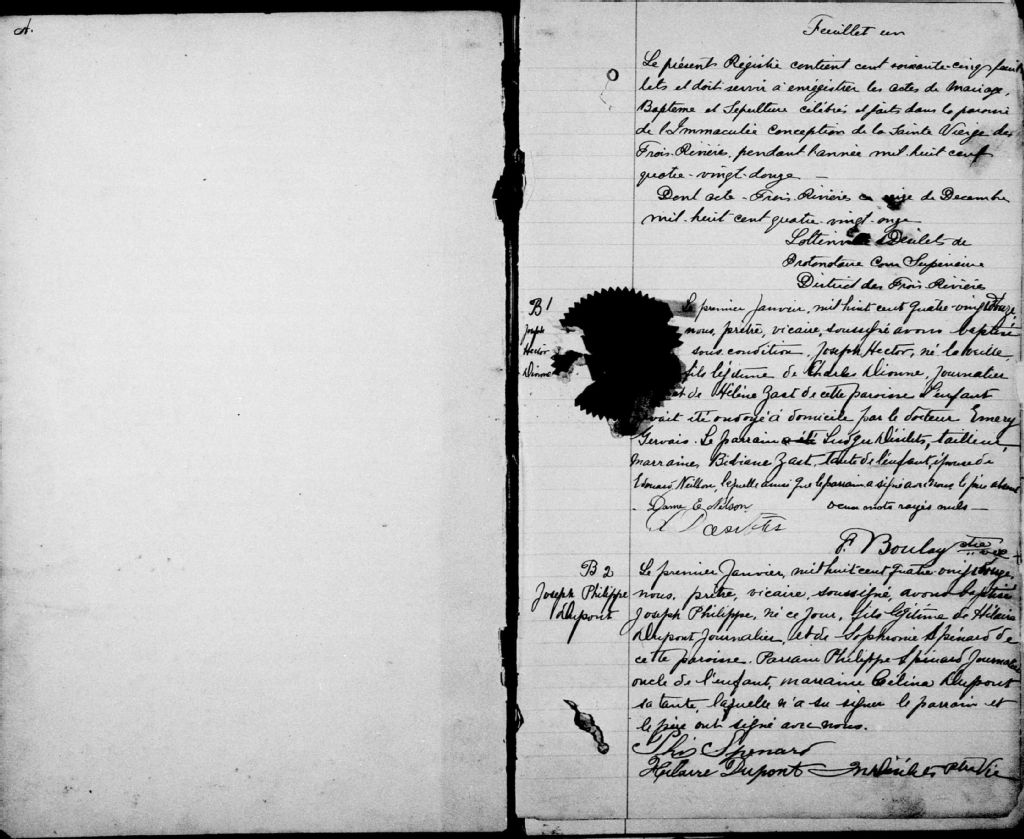 A.
Feuillet un
Le présent Régistre contient cent soixante-cinq feuil
lets et doit servir à enrégistrer les actes de Mariage,
Baptême et Sépulture célébrés et faits dans la paroisse
de l'Immaculée Conception de la Sainte Vierge des
Trois-Rivières, pendant l'année mil-huit cent
quatre-vingt-douze
Dont acte - Trois-Rivières ce de Décembre
mil-huit cent quatre-vingt-onze
Désilets
Protonotaire Cour Supérieure
District des Trois-Rivières
B 1
Joseph
Hector
Dionne
Le premier Janvier, mil huit cent quatre-vingt douze,
nous, prêtre, vicaire, soussigné avons baptisé
sous condition, Joseph Hector, né la veille
fils légitime de Charles Dionne, journalier
et de Hélène Zast de cette paroisse L'enfant
avait été ondoyé à domicile par le docteur Emery
Gervais. Le parrain Désilets, tailleur,
marraine Bibiane Zast, tante de l'enfant épouse de
Edouard Neilson, laquelle ainsi que le parrain a signé avec nous le père absent
Dame E. Nelson deux mots rayés nuls -
Desilets
F. Boulay ptre vic +
B 2
Joseph Philippe
Dupont
Le premier Janvier, mil huit cent quatre-vingt douze,
nous, prêtre, vicaire, soussigné, avons baptisé
Joseph Philippe, né ce jour, fils légitime de Hilaire
Dupont Journalier, et de Sophronie Spénard de
cette paroisse. Parrain Philippe Spénard, Journalier
oncle de l'enfant, marraine Célina Dupont
sa tante, laquelle n'a su signer le parrain et
le père ont signé avec nous.
Phi Spenard
Hilaire Dupont Désilets Ptre Vic